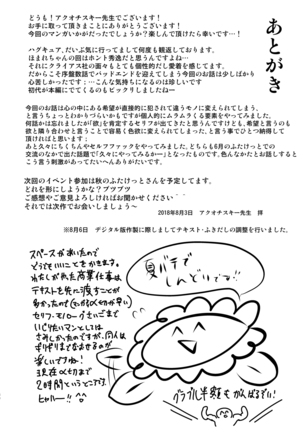 あとがき
どうも!アクオチスキー先生でございます!
お手に取って頂きまことにありがとうございます!
今回のマンガいかがだったでしょうか?楽しんで頂けたら幸いです…!
ハグキュア、だいぶ気に行ってまして何度も観返しております。
ほまれちゃんの回はホント秀逸だと思うんですよね…
それにクライアス社の面々もとても個性的だし愛着を感じてます。
だからこそ序盤数話でバッドエンドを迎えてしまう今回のお話は少しばかり
心苦しかったです…こんな気持ちになるのは珍しいです
初代が本編にでてくるのもビックリしましたねー
今回のお話は心の中にある希望が直接的に犯されて違うモノに変えられてしまう、
と言うちょっとわかりづらいかもですが個人的にムラムラくる要素をやってみました。
何話かは忘れましたが「欲」を肯定するセリフが出てきたと思うんですけども、希望と言うのも
欲と隣り合わせと言うことで容易く色欲に変えられてしまった、と言う事でひとつ納得して
頂ければと思います;
あと久々にちくちんやセルフファックをやってみました。どちらも6月のふたけっとでの
交流のなかで出た話題で「久々にやってみるかー」となったものです。色んなかたとお話しすると
こう言う刺激があってたいへんありがたいです。
次回のイベント参加は秋のふたけっとさんを予定してます。
どれを形にしようかな?ブツブツ
ご感想やご意見よろしければお聞かせください^^
それでは次作でお会いしましょう~
2018年8月3日 アクオチスキー先生 拝
※8月6日 デジタル版作製に際しましてテキスト・ふきだしの調整を行いました。
スペースがあいたので
どうでもいいことをかきます。
わたしがやれた商業仕事は
テキストを先に渡すことが
多かったので
セリフ・モノローグさいごまで
いじりたいマンとしては
さみしかったですが、同人は
ギリギリまでなおせるのが
楽しいですね!
現在〆切まで
2時間ということで。
ヒャハー!!
夏バテで
しんどいでっす!!
グラブル半額もがんばるぞい!